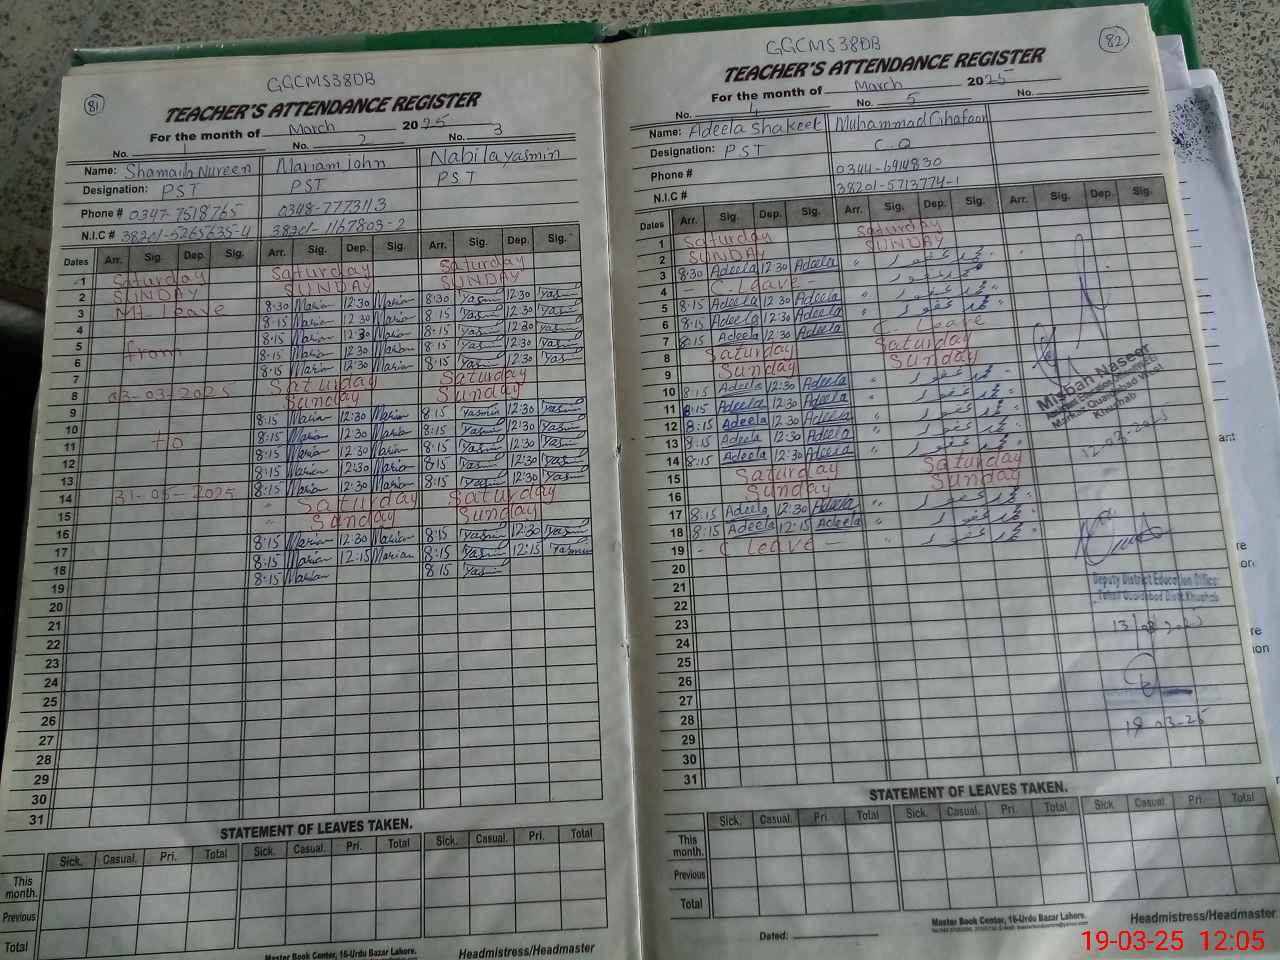 GGCMS38DB
81
TEACHER'S ATTENDANCE REGISTER
For the month of March 2025
No. 1 No. 2 No. 3
Name: Shamaila Nureen Mariam John Nabila Yasmin
Designation: PST PST PST
Phone # 0347-7518765 0348-7773113
N.I.C # 38201-5265635-4 38201-1167803-2
Dates Arr. Sig. Dep. Sig. Arr. Sig. Dep. Sig. Arr. Sig. Dep. Sig.
1 Saturday Saturday Saturday
2 SUNDAY SUNDAY SUNDAY
3 Mt. Leave 8:30 Marian 12:30 Marian 8:30 Yasmin 12:30 Yasmin
4 8:15 Marian 12:30 Marian 8:15 Yasmin 12:30 Yasmin
5 from 8:15 Marian 12:30 Marian 8:15 Yasmin 12:30 Yasmin
6 8:15 Marian 12:30 Marian 8:15 Yasmin 12:30 Yasmin
7 8:15 Marian 12:30 Marian 8:15 Yasmin 12:30 Yasmin
8 03-03-2025 Saturday Saturday
9 Sunday Sunday
10 to 8:15 Marian 12:30 Marian 8:15 Yasmin 12:30 Yasmin
11 8:15 Marian 12:30 Marian 8:15 Yasmin 12:30 Yasmin
12 8:15 Marian 12:30 Marian 8:15 Yasmin 12:30 Yasmin
13 8:15 Marian 12:30 Marian 8:15 Yasmin 12:30 Yasmin
14 31-05-2025 8:15 Marian 12:30 Marian 8:15 Yasmin 12:30 Yasmin
15 Saturday Saturday
16 Sunday Sunday
17 8:15 Marian 12:30 Marian 8:15 Yasmin 12:30 Yasmin
18 8:15 Marian 12:15 Marian 8:15 Yasmin 12:15 Yasmin
19 8:15 Marian 8:15 Yasmin
20
21
22
23
24
25
26
27
28
29
30
31
STATEMENT OF LEAVES TAKEN.
Sick. Casual. Pri. Total Sick. Casual. Pri. Total Sick. Casual. Pri. Total
This month.
Previous
Total
Master Book Center, 16-Urdu Bazar Lahore.
Headmistress/Headmaster
GGCMS38DB
82
TEACHER'S ATTENDANCE REGISTER
For the month of March 2025
No. 4 No. 5 No.
Name: Adeela Shakeel Muhammad Ghafoor
Designation: PST C.Q
Phone # 0344-6914830
N.I.C # 38201-5713774-1
Dates Arr. Sig. Dep. Sig. Arr. Sig. Dep. Sig. Arr. Sig. Dep. Sig.
1 Saturday Saturday
2 SUNDAY SUNDAY
3 8:30 Adeela 12:30 Adeela " محمد غفور
4 - C. Leave - " محمد غفور
5 8:15 Adeela 12:30 Adeela " محمد غفور
6 8:15 Adeela 12:30 Adeela " محمد غفور
7 8:15 Adeela 12:30 Adeela C. Leave
8 Saturday Saturday
9 Sunday Sunday
10 8:15 Adeela 12:30 Adeela " محمد غفور
11 8:15 Adeela 12:30 Adeela " محمد غفور
12 8:15 Adeela 12:30 Adeela " محمد غفور
13 8:15 Adeela 12:30 Adeela " محمد غفور
14 8:15 Adeela 12:30 Adeela " محمد غفور
15 Saturday Saturday
16 Sunday Sunday
17 8:15 Adeela 12:30 Adeela " محمد غفور
18 8:15 Adeela 12:15 Adeela " محمد غفور
19 - C Leave - " محمد غفور
20
21
22
23
24
25
26
27
28
29
30
31
Misbah Naseer
Markaz Quaidabad West
Khushab
12-03-2025
Deputy District Education Officer
Tehsil Quaidabad Distt. Khushab
13/03/2025
19-03-25
STATEMENT OF LEAVES TAKEN.
Sick. Casual. Pri. Total Sick. Casual. Pri. Total Sick. Casual. Pri. Total
This month.
Previous
Total
Dated:
Master Book Center, 16-Urdu Bazar Lahore.
Headmistress/Headmaster
19-03-25 12:05